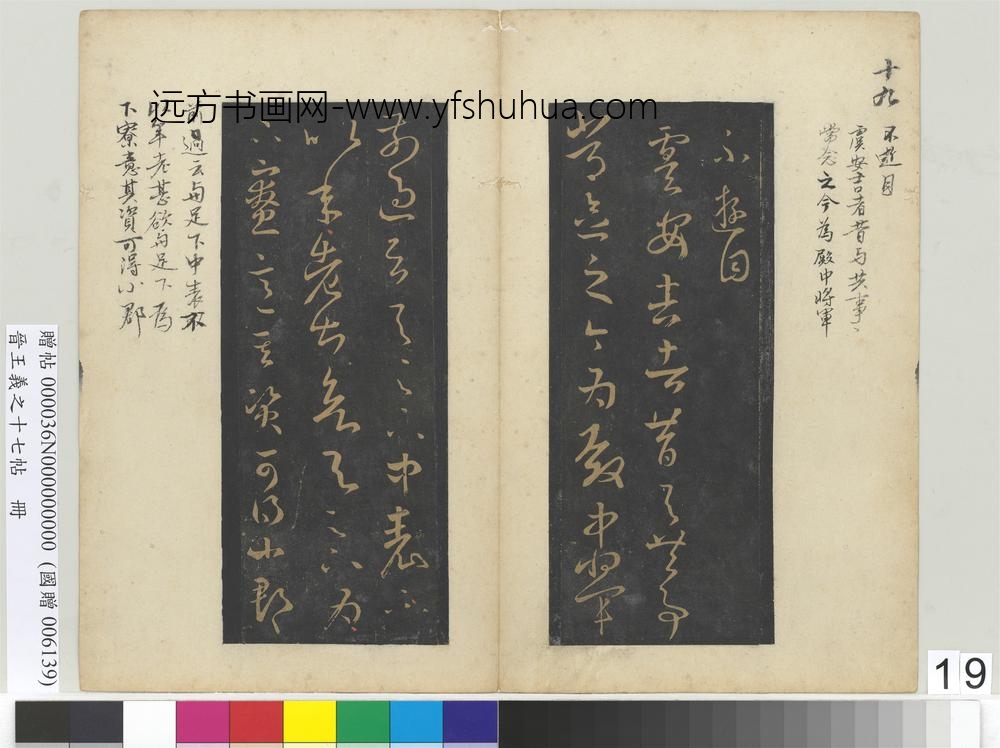 远方书画网-www.yfshuhua.com
十九
不遊目
虞安吉者昔与共事〻
常念之今為殿中將軍
前過云与足下中表不
以年老甚欲与足下為
下寮意其資可得小郡
不遊目
虞安吉者昔与共事
常念之今為殿中將軍
前過云与足下中表不
以年老甚欲与足下為
下寮意其資可得小郡
贈帖 000036N000000000 (國贈 006139)
晉王羲之十七帖 冊
19